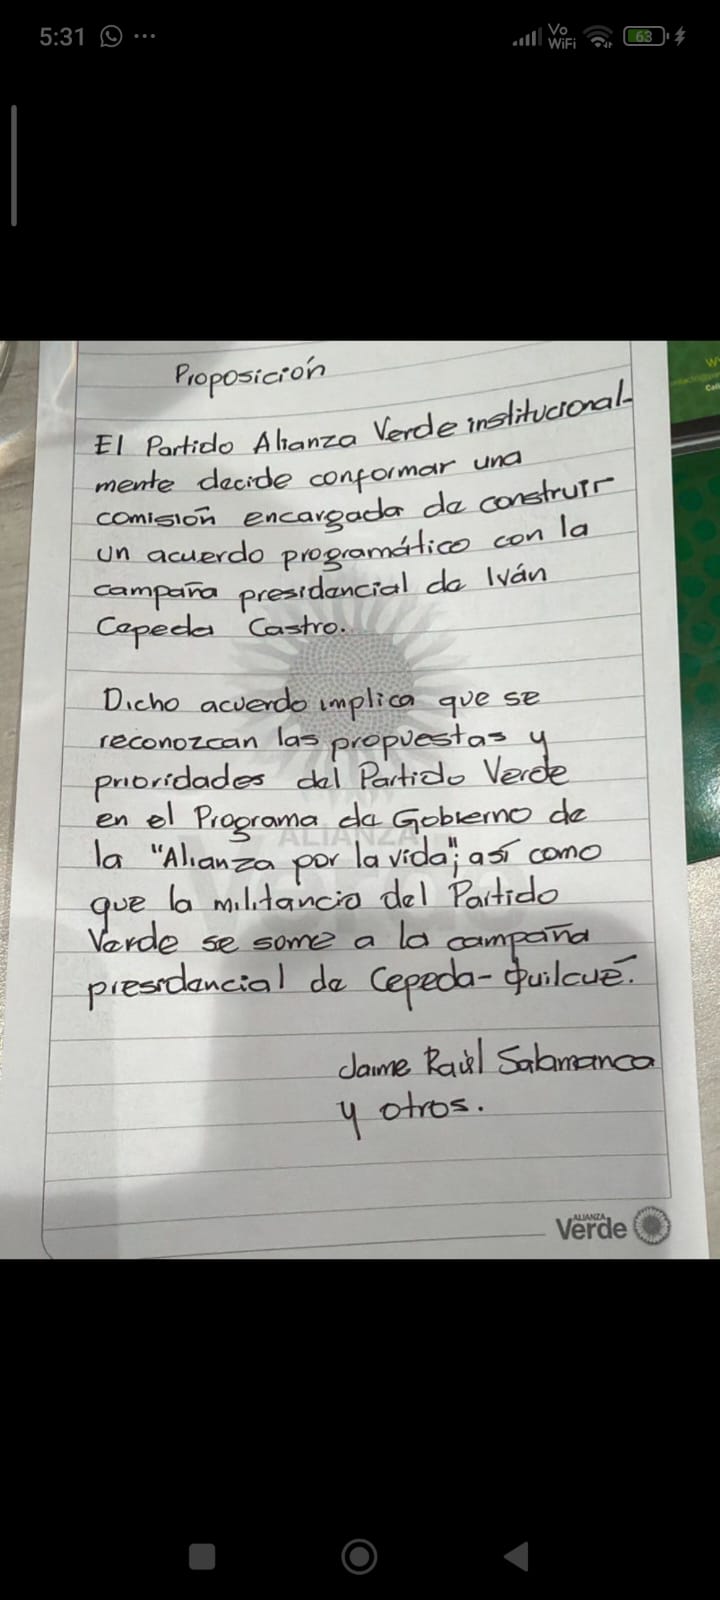 5:31
Vo
WiFi
63
Proposición
El Partido Alianza Verde institucional-
mente decide conformar una
comisión encargada de construir
un acuerdo programático con la
campaña presidencial de Iván
Cepeda Castro.
Dicho acuerdo implica que se
reconozcan las propuestas y
prioridades del Partido Verde
en el Programa de Gobierno de
ALIANZA
la "Alianza por la vida"; así como
que la militancia del Partido
Verde se some a la campaña
presidencial de Cepeda-Quilcué.
Jaime Raúl Salamanca
y otros.
ALIANZA
Verde